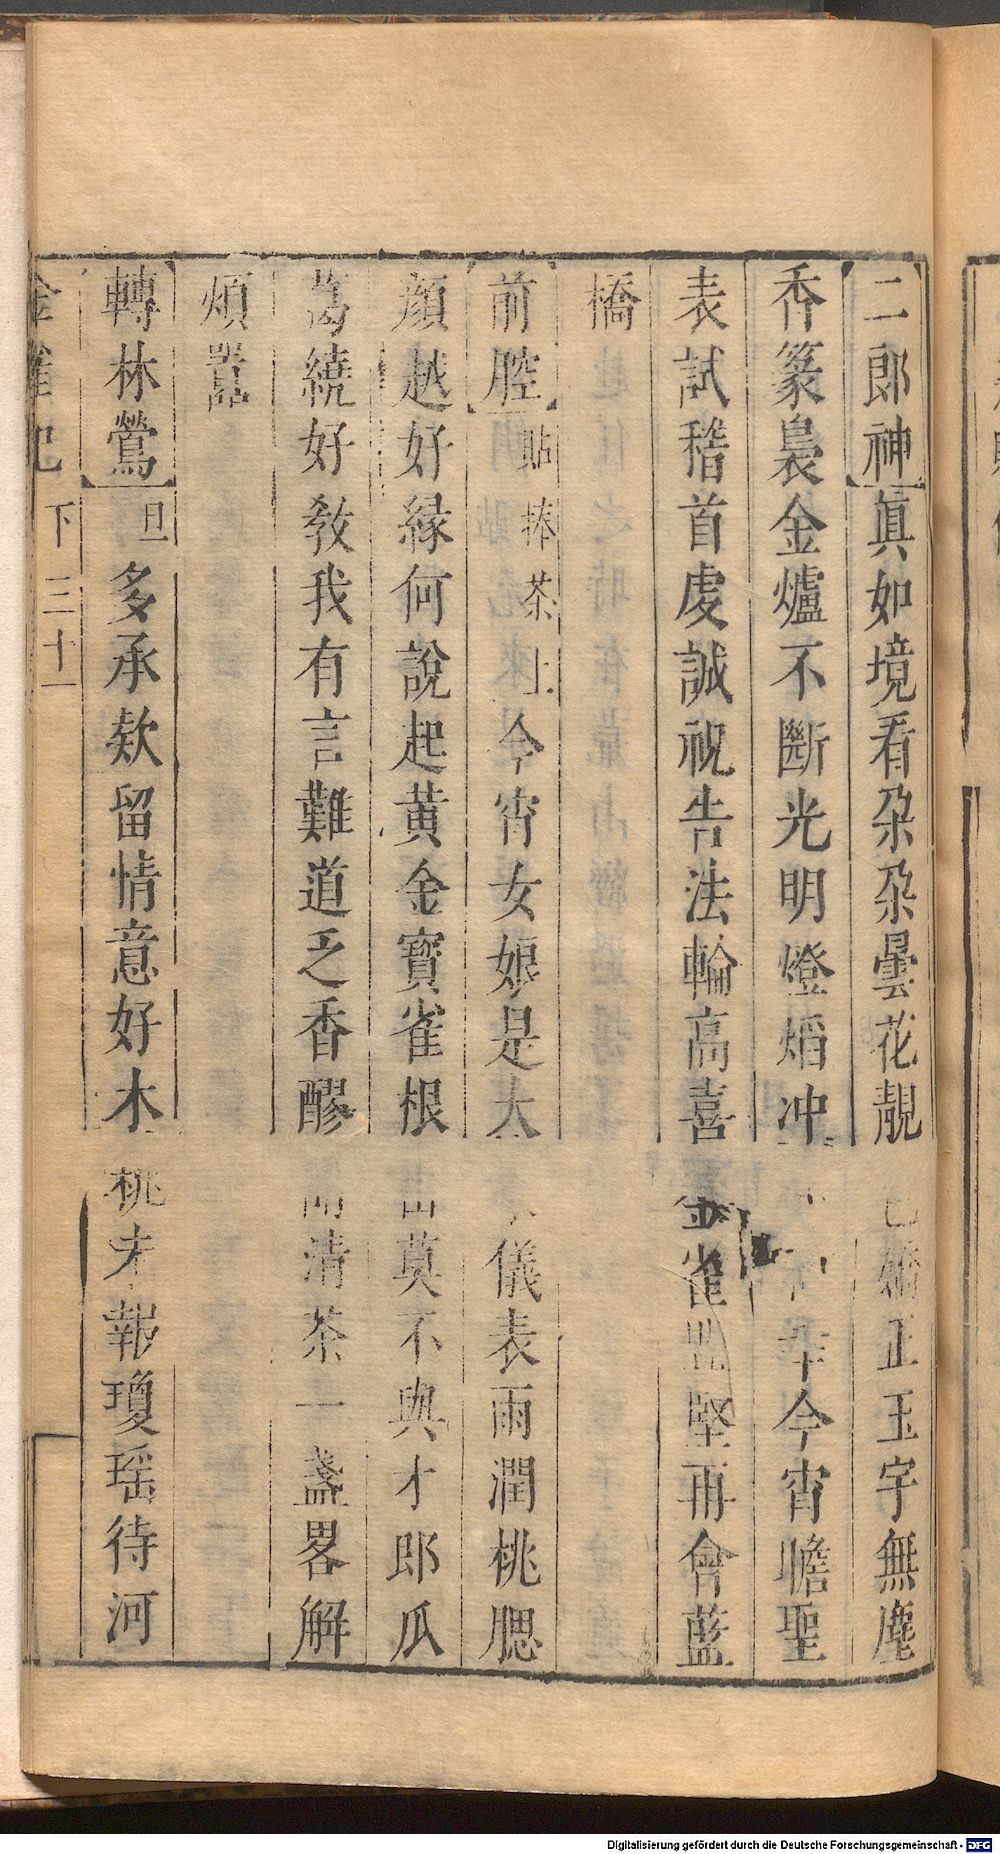 二郎神眞如境看朶朶曇花靚色嬌正玉宇無塵
香篆裊金爐不斷光明燈熖冲 幸今宵瞻聖
表試稽首虔誠祝告法輪高喜金雀 堅再會藍
橋
前腔貼捧茶上今宵女娘是大 儀表雨潤桃腮
顔越好緣何說起黃金寳雀根 莫不與才郎瓜
葛繞好敎我有言難道乏香醪 清茶一盞畧解
煩囂
轉林鶯旦多承欵留情意好木桃未報瓊瑶待河
金雀記 下 三十一
Digitalisierung gefördert durch die Deutsche Forschungsgemeinschaft - DFG